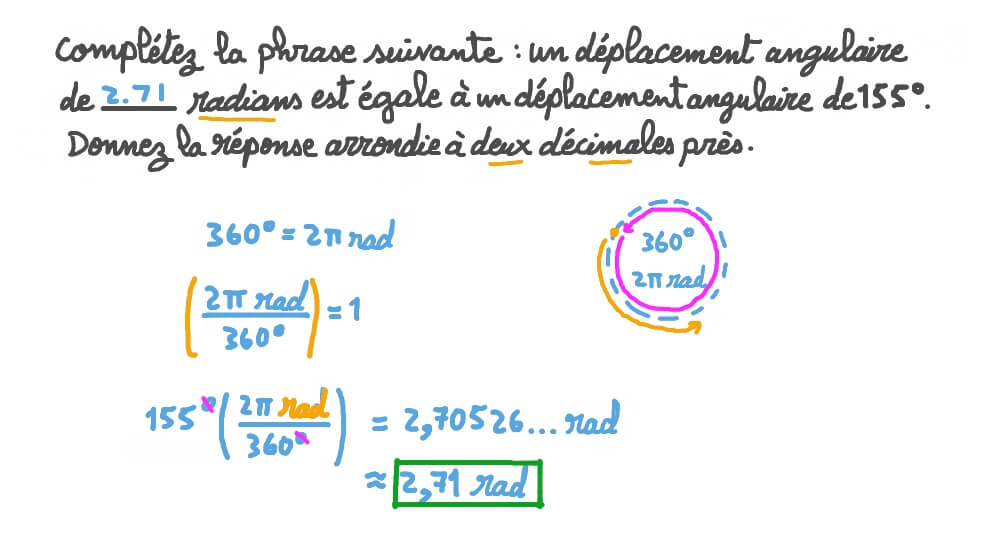 Complétez la phrase suivante : un déplacement angulaire
de 2.71 radians est égale à un déplacement angulaire de 155°.
Donnez la réponse arrondie à deux décimales près.
360° = 2π rad
(2π rad / 360°) = 1
155° (2π rad / 360°) = 2,70526... rad
≈ 2,71 rad
360°
2π rad